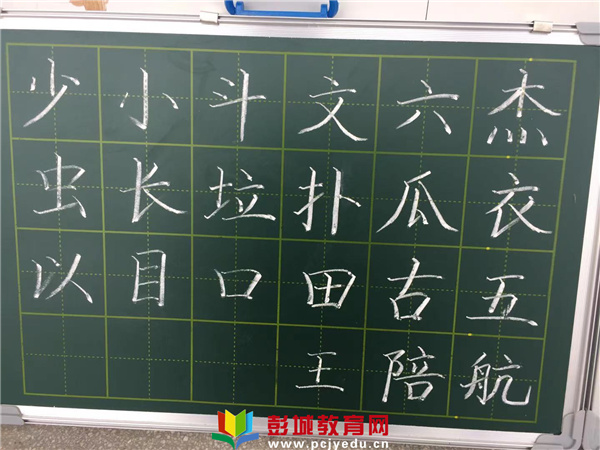 少小斗文六杰
虫长垃扑瓜衣
以目口田古五
王陪航
彭城教育网
www.pcjyedu.cn